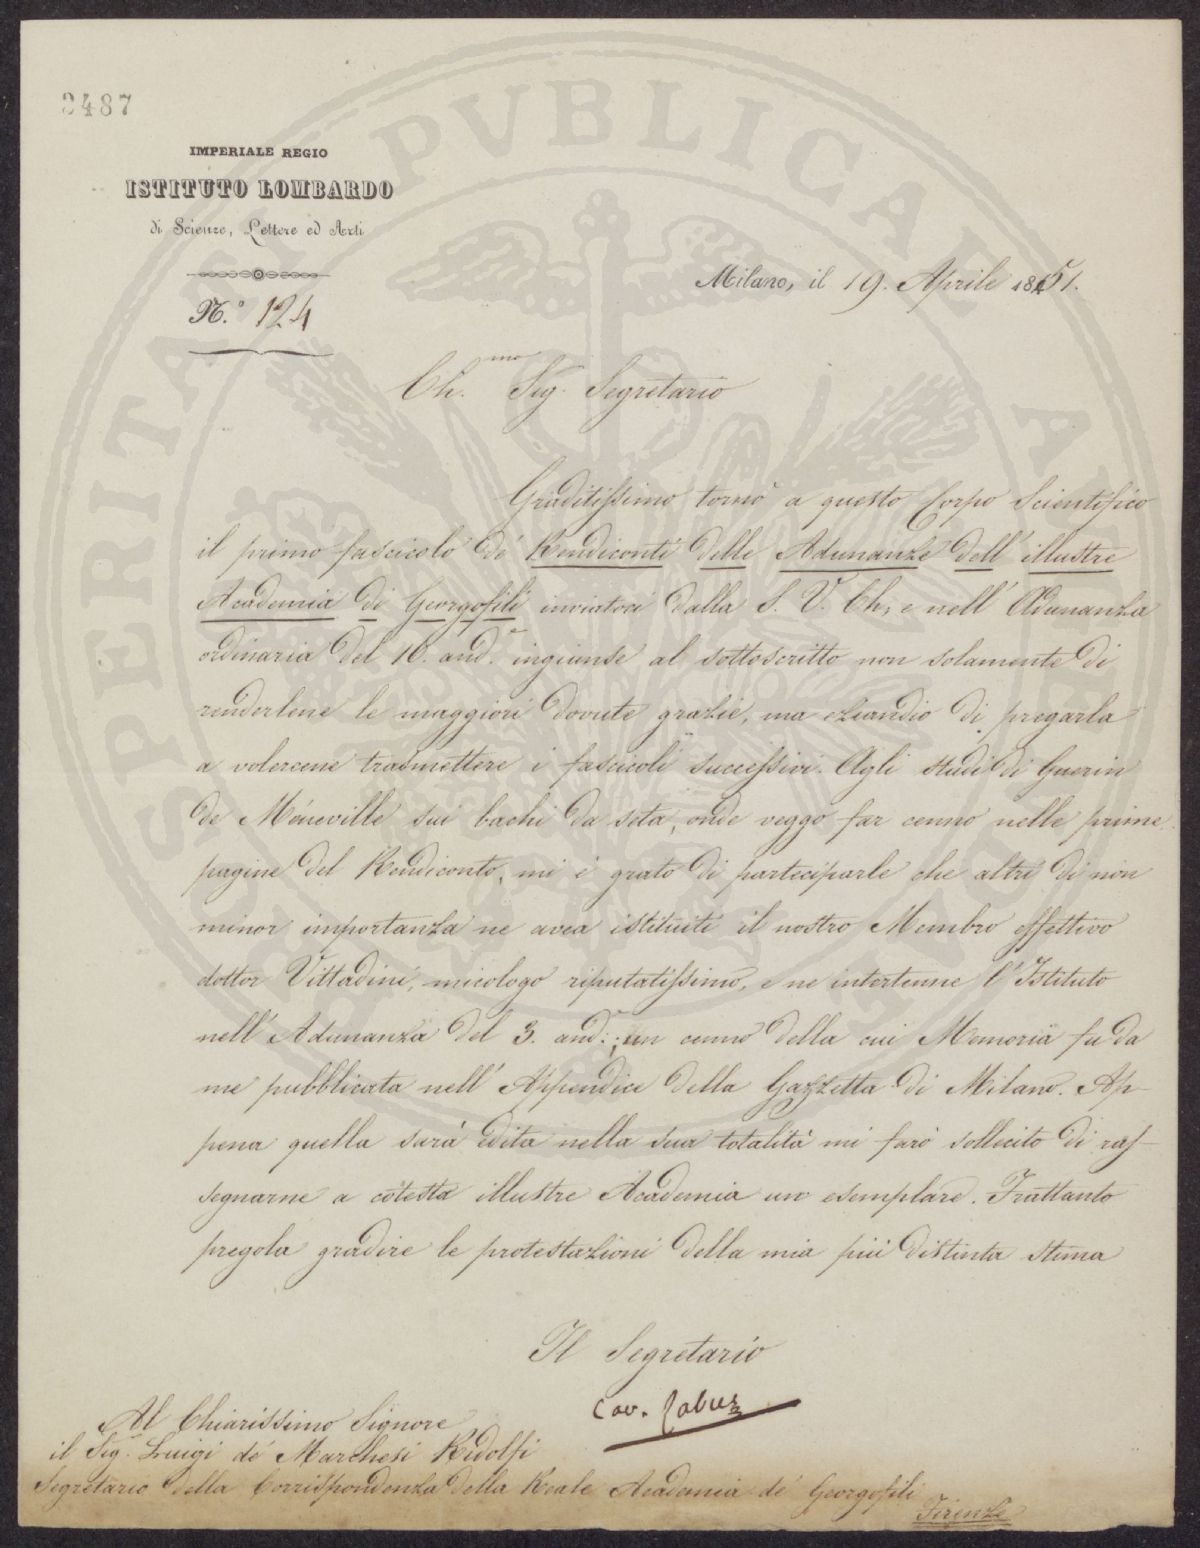 2487
IMPERIALE REGIO
ISTITUTO LOMBARDO
di Scienze, Lettere ed Arti
N.° 124
Milano, il 19. Aprile 1851.
Ch.mo Sig. Segretario
Graditissimo tornò a questo Corpo Scientifico
il primo fascicolo de' Rendiconti delle Adunanze dell'illustre
Academia di Georgofili inviatoci dalla S. V. Ch; e nell'Adunanza
ordinaria del 10. and.e ingiunse al sottoscritto non solamente di
renderlene le maggiori dovute grazie, ma eziandio di pregarla
a volercene trasmettere i fascicoli successivi. Agli studi di Guerin
de Méneville sui bachi da seta, onde veggo far cenno nelle prime
pagine del Rendiconto, mi è grato di parteciparle che altri di non
minor importanza ne avea istituiti il nostro Membro effettivo
dottor Vittadini, micologo riputatissimo, e ne intertenne l'Istituto
nell'Adunanza del 3. and.e; un cenno della cui Memoria fu da
me pubblicata nell'Appendice della Gazzetta di Milano. Ap-
pena quella sarà edita nella sua totalità mi farò sollecito di ras-
segnarne a cotesta illustre Academia un esemplare. Frattanto
pregola gradire le protestazioni della mia più distinta stima
Il Segretario
Cav.
Al Chiarissimo Signore
il Sig. Luigi de' Marchesi Ridolfi
Segretario della Corrispondenza della Reale Academia de' Georgofili
Firenze
PROSPERITATI PUBLICAE AUGENDAE